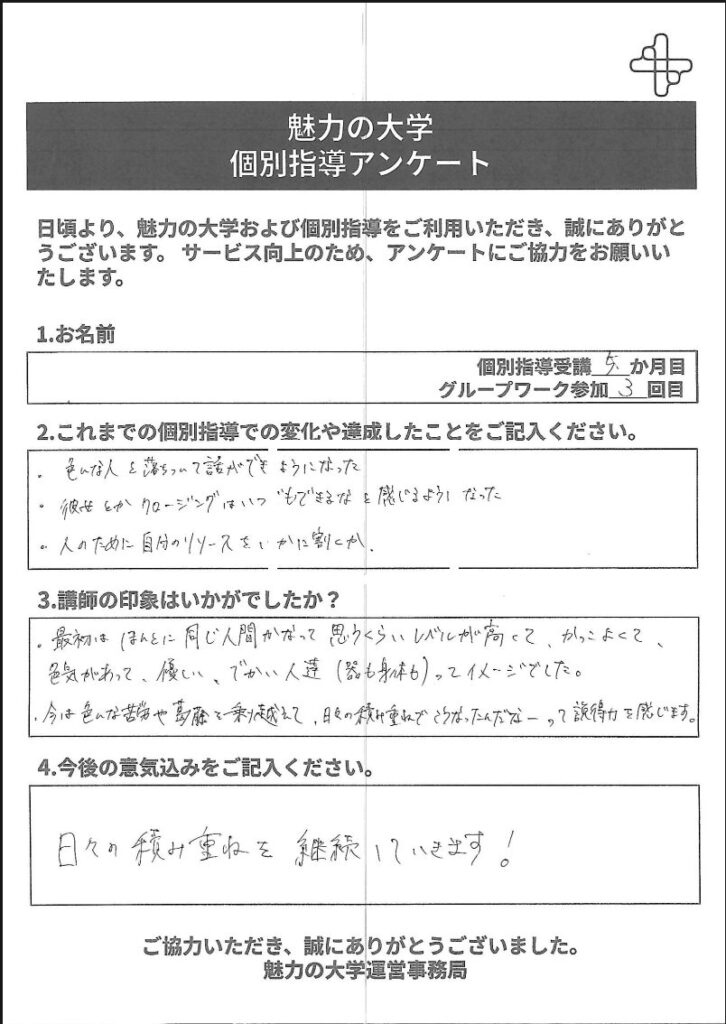 魅力の大学
個別指導アンケート
日頃より、魅力の大学および個別指導をご利用いただき、誠にありがと
うございます。 サービス向上のため、アンケートにご協力をお願いい
たします。
1.お名前
個別指導受講 5 か月目
グループワーク参加 3 回目
2.これまでの個別指導での変化や達成したことをご記入ください。
・色んな人と落ちついて話ができようになった
・彼女とかクロージングはいつでもできるなと感じるようになった
・人のために自分のリソースをいかに割くか.
3.講師の印象はいかがでしたか?
・最初はほんとに同じ人間かなって思うくらいレベルが高くて、かっこよくて、
色気があって、優しい、でかい人達(器も身体も)ってイメージでした。
・今は色んな苦労や葛藤を乗り越えて、日々の積み重ねでこうなったんだなーって説得力を感じます。
4.今後の意気込みをご記入ください。
日々の積み重ねを継続していきます!
ご協力いただき、誠にありがとうございました。
魅力の大学運営事務局